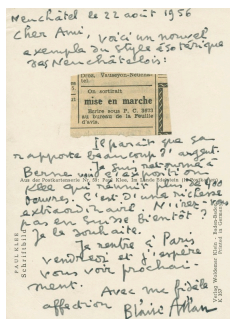 Neuchâtel le 22 août 1956
Cher Ami, voici un nouvel
exemple du style ésotérique
des Neuchâtelois:
On sortirait
mise en marche
Ecrire sous P. C. 
au bureau de la Feuille
d'avis.
Il paraît que ça
rapporte beaucoup d'argent.
suis retourné à
Berne voir l'exposition
Klee qui réunit plus de 700
œuvres. C'est d'une richesse
extraordinaire. N'irez-vous
pas en Suisse bientôt ?
Je le souhaite.
Je rentre à Paris
vendredi et j'espère
vous voir prochai-
nement. Avec ma fidèle
affection
Blaise Allan
PAUL KLEE
Schriftbild
Verlag Woldemar Klein, Baden-Baden
Printed in Germany